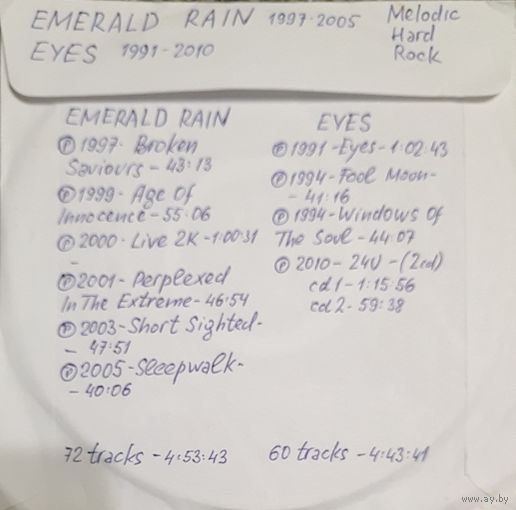 EMERALD RAIN 1997-2005
EYES 1991-2010
Melodic
Hard
Rock
EMERALD RAIN
℗ 1997- Broken
Saviours - 43:13
℗ 1999- Age Of
Innocence - 55:06
℗ 2000- Live 2K - 1:00:31
-
℗ 2001- Perplexed
In The Extreme - 46:54
℗ 2003 - Short Sighted -
- 47:51
℗ 2005 - Sleepwalk -
- 40:06
72 tracks - 4:53:43
EYES
℗ 1991 - Eyes - 1:02:43
℗ 1994 - Fool Moon -
- 41:16
℗ 1994 - Windows Of
The Soul - 44:07
℗ 2010 - 24U - (2cd)
cd1 - 1:15:56
cd2 - 59:38
60 tracks - 4:43:41
www.ay.by